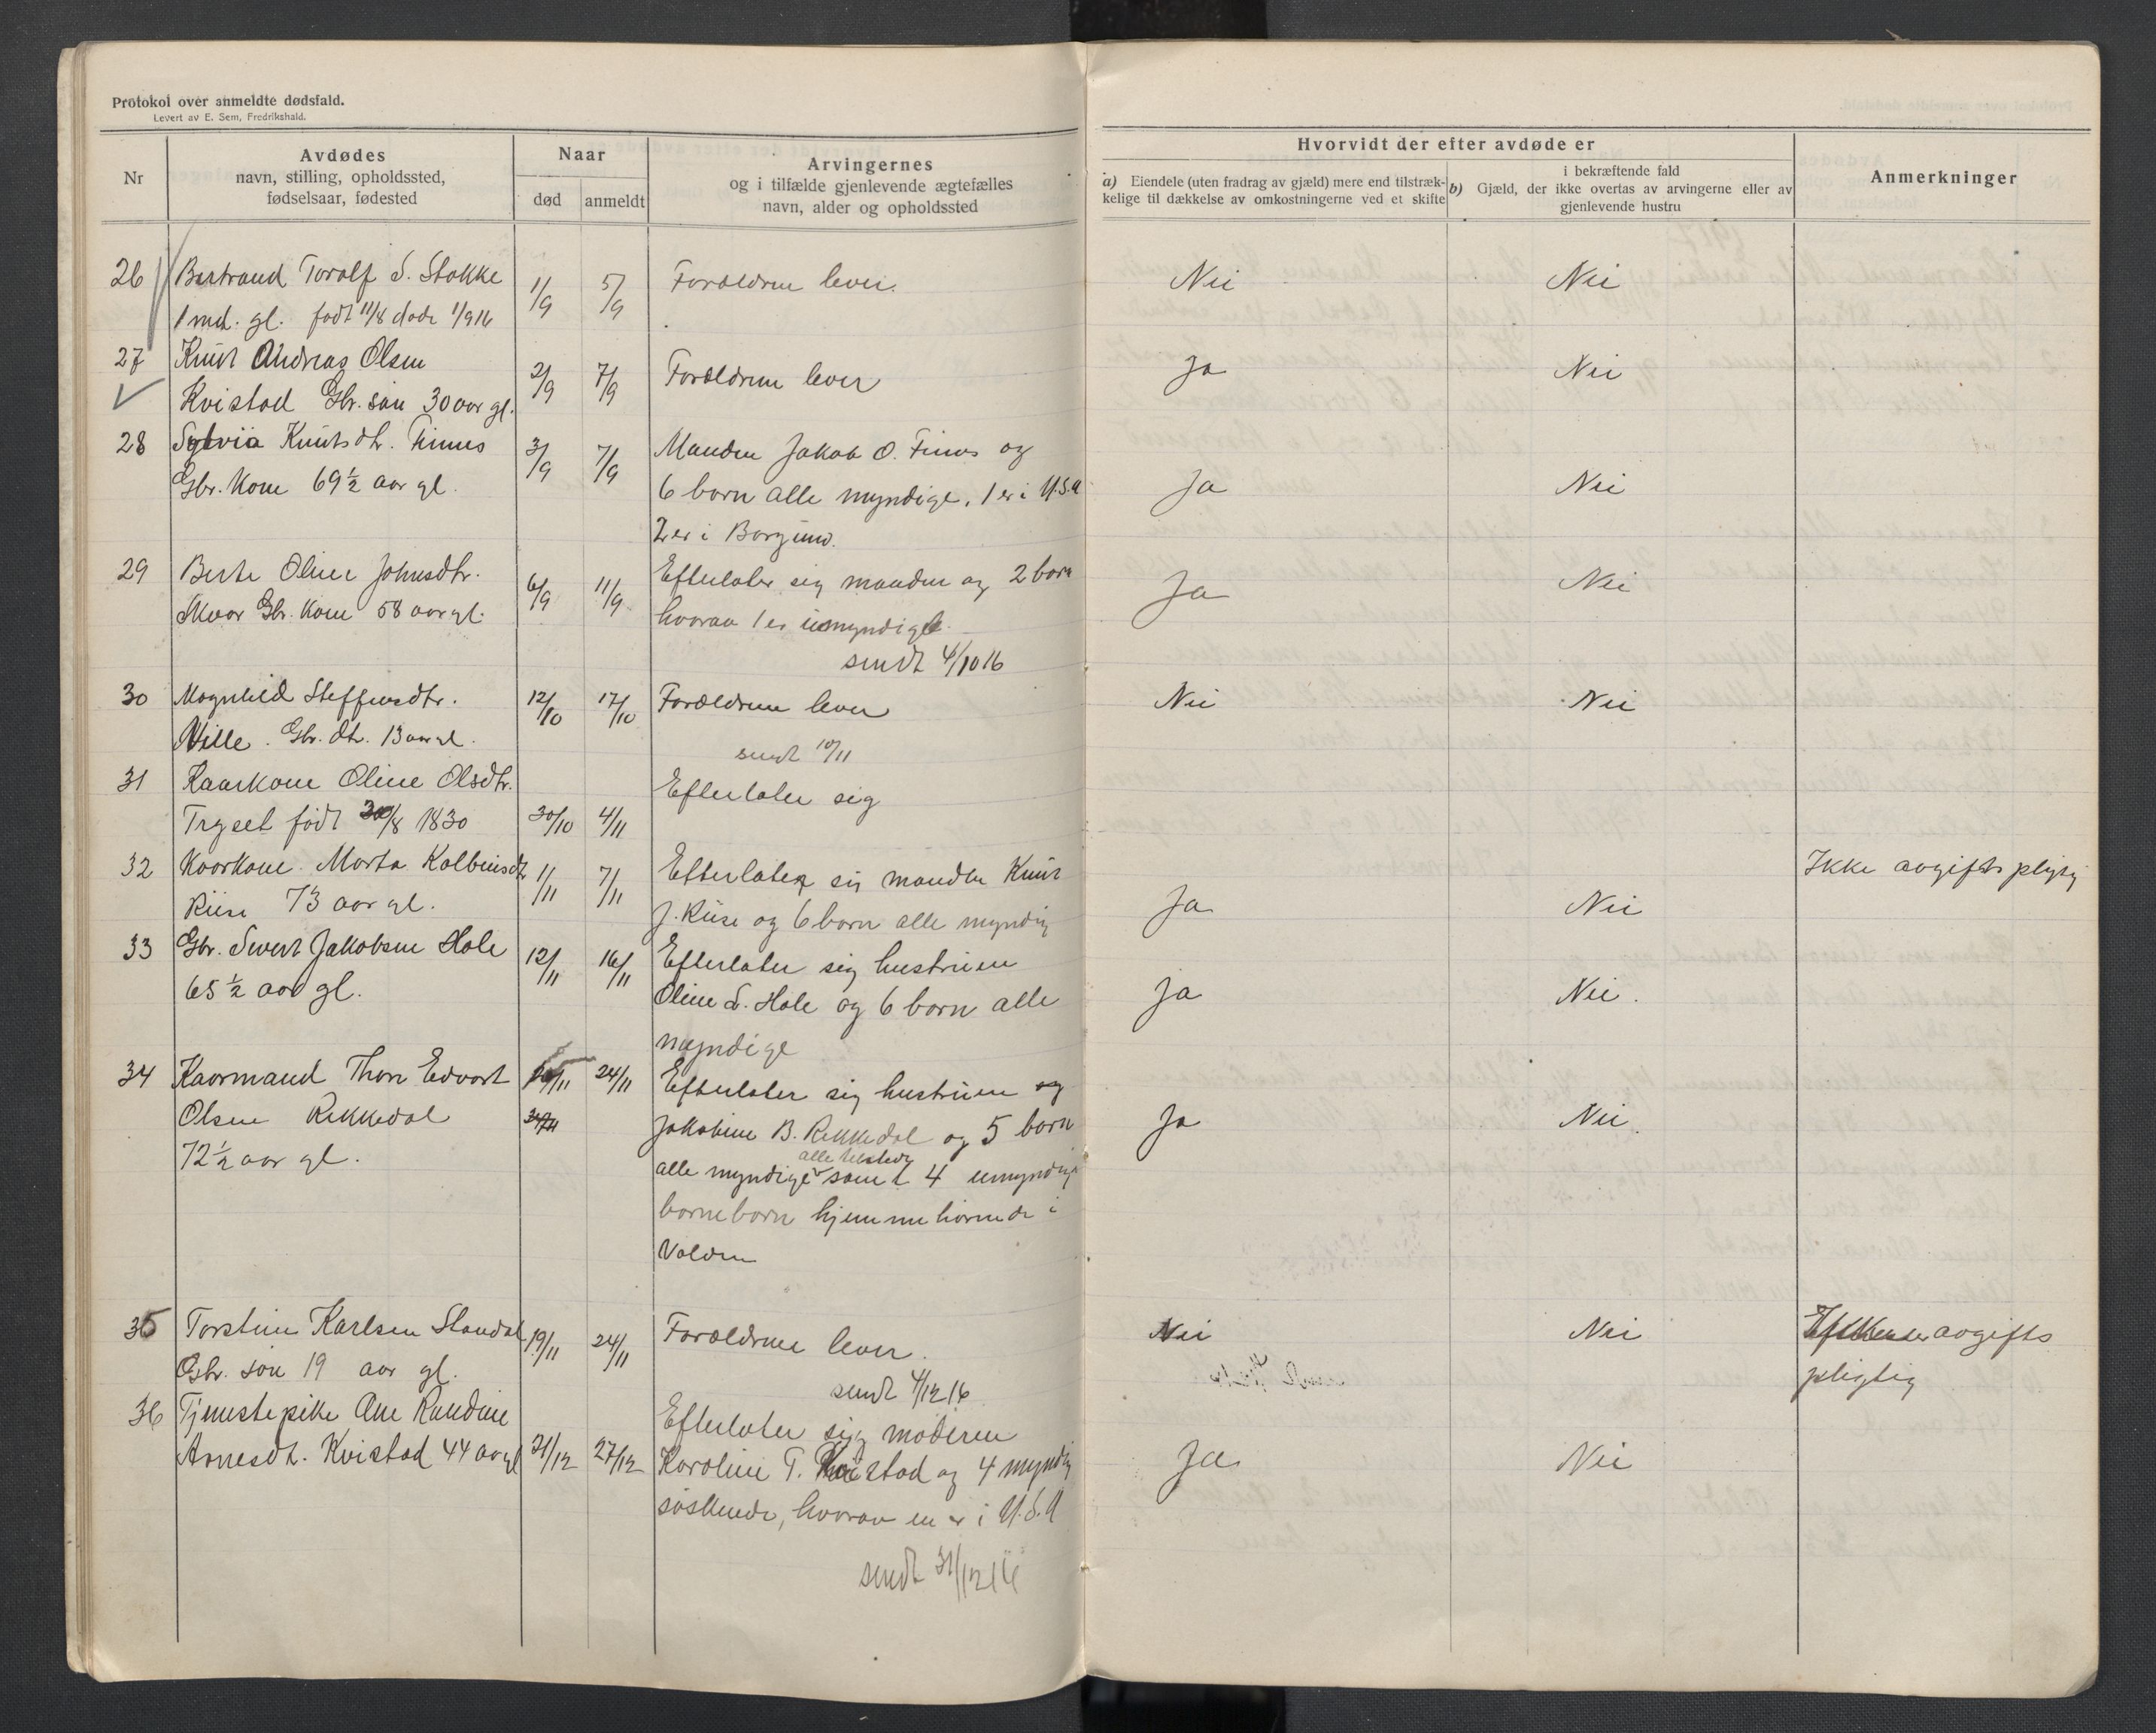 Protokol over anmeldte dødsfald.
Levert av E. Sem, Fredrikshald.
Nr
Avdødes
navn, stilling, opholdssted,
fødselsaar, fødested
Naar
død
anmeldt
Arvingernes
og i tilfælde gjenlevende ægtefælles
navn, alder og opholdssted
Hvorvidt der efter avdøde er
a) Eiendele (uten fradrag av gjæld) mere end tilstræk-
kelige til dækkelse av omkostningerne ved et skifte
i bekræftende fald
b) Gjæld, der ikke overtas av arvingerne eller av
gjenlevende hustru
Anmerkninger
26 Bertrand Toralf S. Stokke 1/9 5/9 Forældrene lever. Nei Nei
1 md. gl. født 11/8 døde 1/916
27 Knut Andreas Olsen 2/9 7/9 Forældrene lever Ja Nei
Kvistad Gbr. søn 30 aar gl.
28 Sylvia Knutsdtr. Finnes 3/9 7/9 Manden Jakob O. Finnes og
Gbr. kone 69½ aar gl. 6 born alle myndige, 1 er i U.S.A Ja Nei
2 er i Borgund.
29 Berte Oline Johnsdtr. 6/9 11/9 Efterlater sig manden og 2 born Ja Nei
Skaar Gbr. kone 58 aar gl. hvorav 1 er umyndig
sendt 4/10 16
30 Magnhild Steffensdtr. 12/10 17/10 Forældrene lever Nei Nei
Ville. Gbr. dtr. 13 aar gl.
sendt 10/11
31 Kaarkone Oline Olsdtr. Efterlater sig
Tryset født 30/8 1830 30/10 4/11
32 Kaarkone Marta Kolbeinsdt 1/11 7/11 Efterlater sig manden Knut Ikke avgiftspligtig
Riise 73 aar gl. J. Riise og 6 born alle myndig Ja Nei
33 Gbr. Sivert Jakobsen Hole 12/11 16/11 Efterlater sig hustruen
65½ aar gl. Oline S. Hole og 6 born alle Ja Nei.
myndige
34 Kaarmand Thore Edvart 24/11 Efterlater sig hustruen og
Olsen Rekkedal Jakobine B. Rekkedal og 5 born Ja Nei.
72½ aar gl. alle tilstede
alle myndige samt 4 umyndige
borneborn hjemmehørende i
Volden
35 Torstein Karlsen Standal 19/11 24/11 Forældrene lever. Nei Nei avgifts
Gbr. søn 19 aar gl. pligtig
sendt 4/12 16
36 Tjenestepike Ane Randine Efterlater sig moderen
Arnesdt. Kvistad 44 aar gl 21/12 27/12 Karoline T. Kvistad og 4 myndig Ja Nei
søskende, hvorav en er i U.S.A
sendt 31/12 16